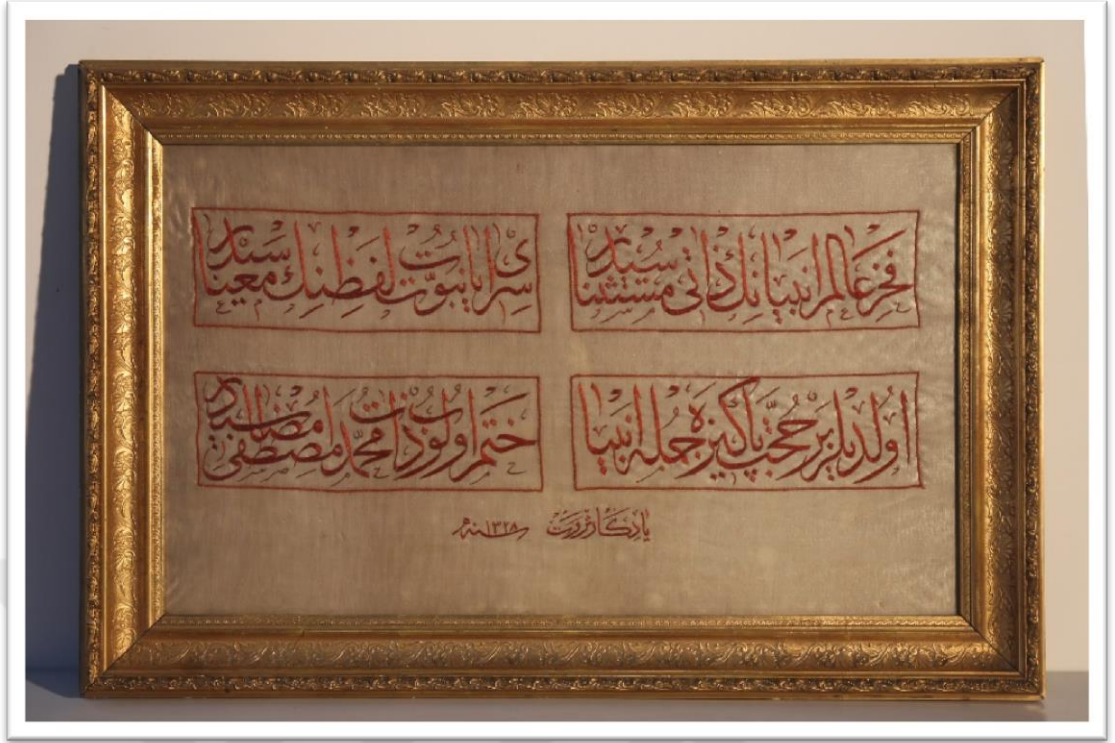 فخر عالم انبیانك ذاتی مستثناسیدر سراپای نبوت لفظنك معناسیدر
اولدیلر بر حجت پاکیزه جمله انبیا ختم اولوب ذات محمد مصطفی امضاسیدر
یادكار ثروت سنه ١٣٢٨